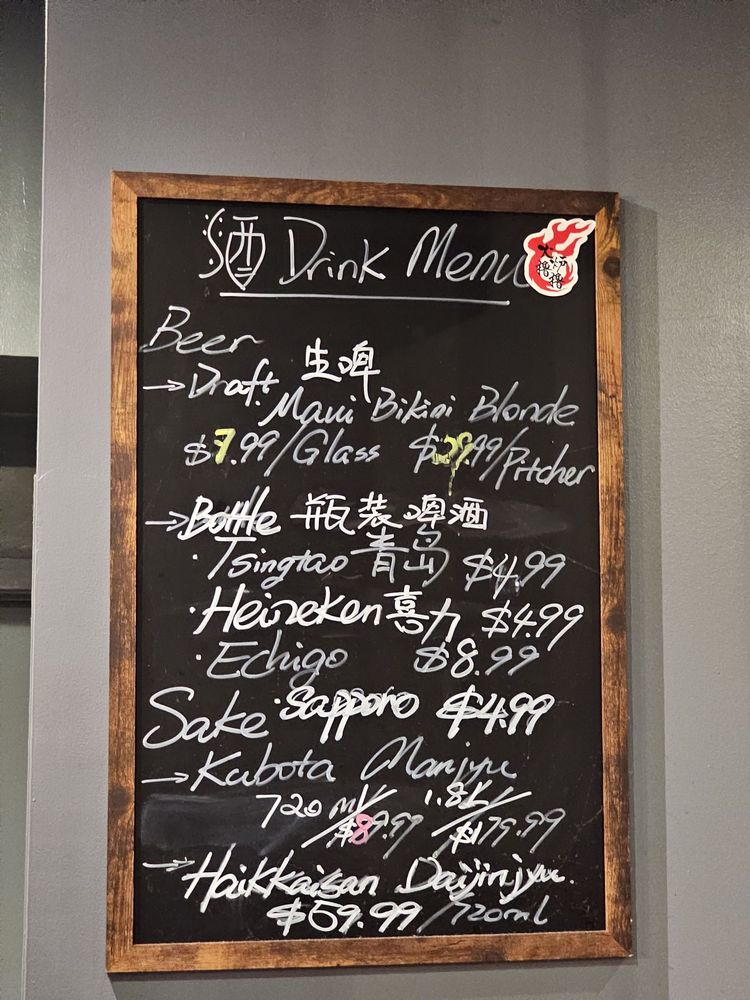 酒 Drink Menu
Beer
→ Draft 生啤
Maui Bikini Blonde
$7.99/Glass $29.99/Pitcher
→ Bottle 瓶装啤酒
· Tsingtao 青岛 $4.99
· Heineken 喜力 $4.99
· Echigo $8.99
· Sapporo $4.99
Sake
→ Kubota Manjyu
720ml/$89.99 1.8L/$179.99
→ Haikkaisan Daijinjyu.
$59.99/720ml